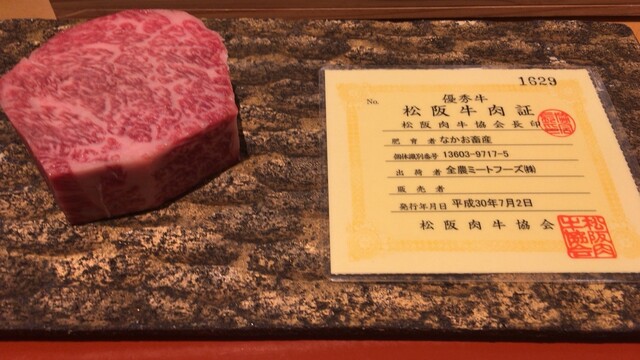 1629
No.
優秀牛
松阪牛肉証
松阪肉牛協会長印
肥育者 なかお畜産
個体識別番号 13603-9717-5
出荷者 全農ミートフーズ㈱
販売者
発行年月日 平成30年7月2日
松阪肉牛協会